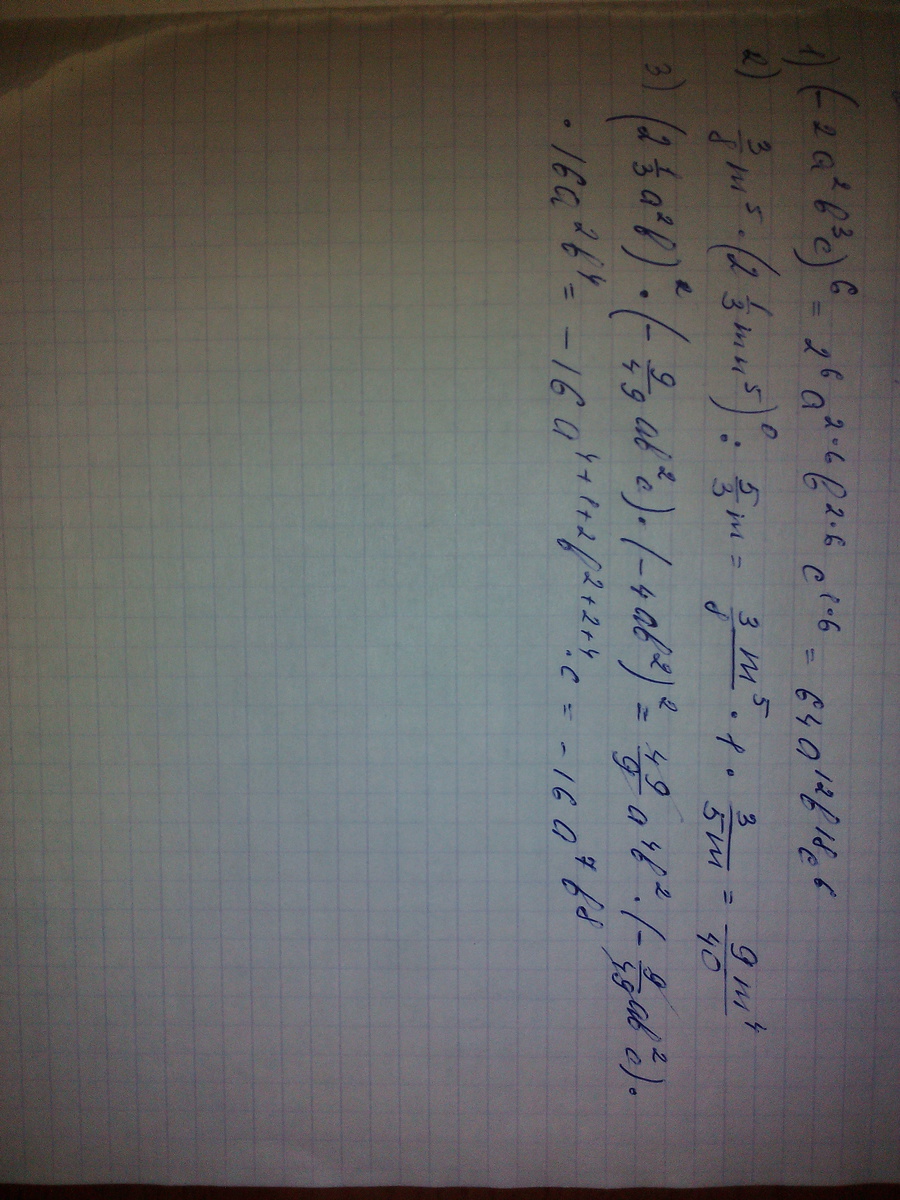 1) (-2a²b³c)⁶ = 2⁶a²·⁶b²·⁶c¹·⁶ = 64a¹²b¹⁸c⁶
2) 3/8 m⁵ · (2 1/3 mn⁵)⁰ : 5/3 m = 3m⁵/8 · 1 · 3/5m = 9m⁴/40
3) (2 1/3 a²b)² · (- 9/49 ab²c) · (-4ab²)² = 49/9 a⁴b² · (- 9/49 ab²c) ·
· 16a²b⁴ = -16a⁴⁺¹⁺²b²⁺²⁺⁴·c = -16a⁷b8